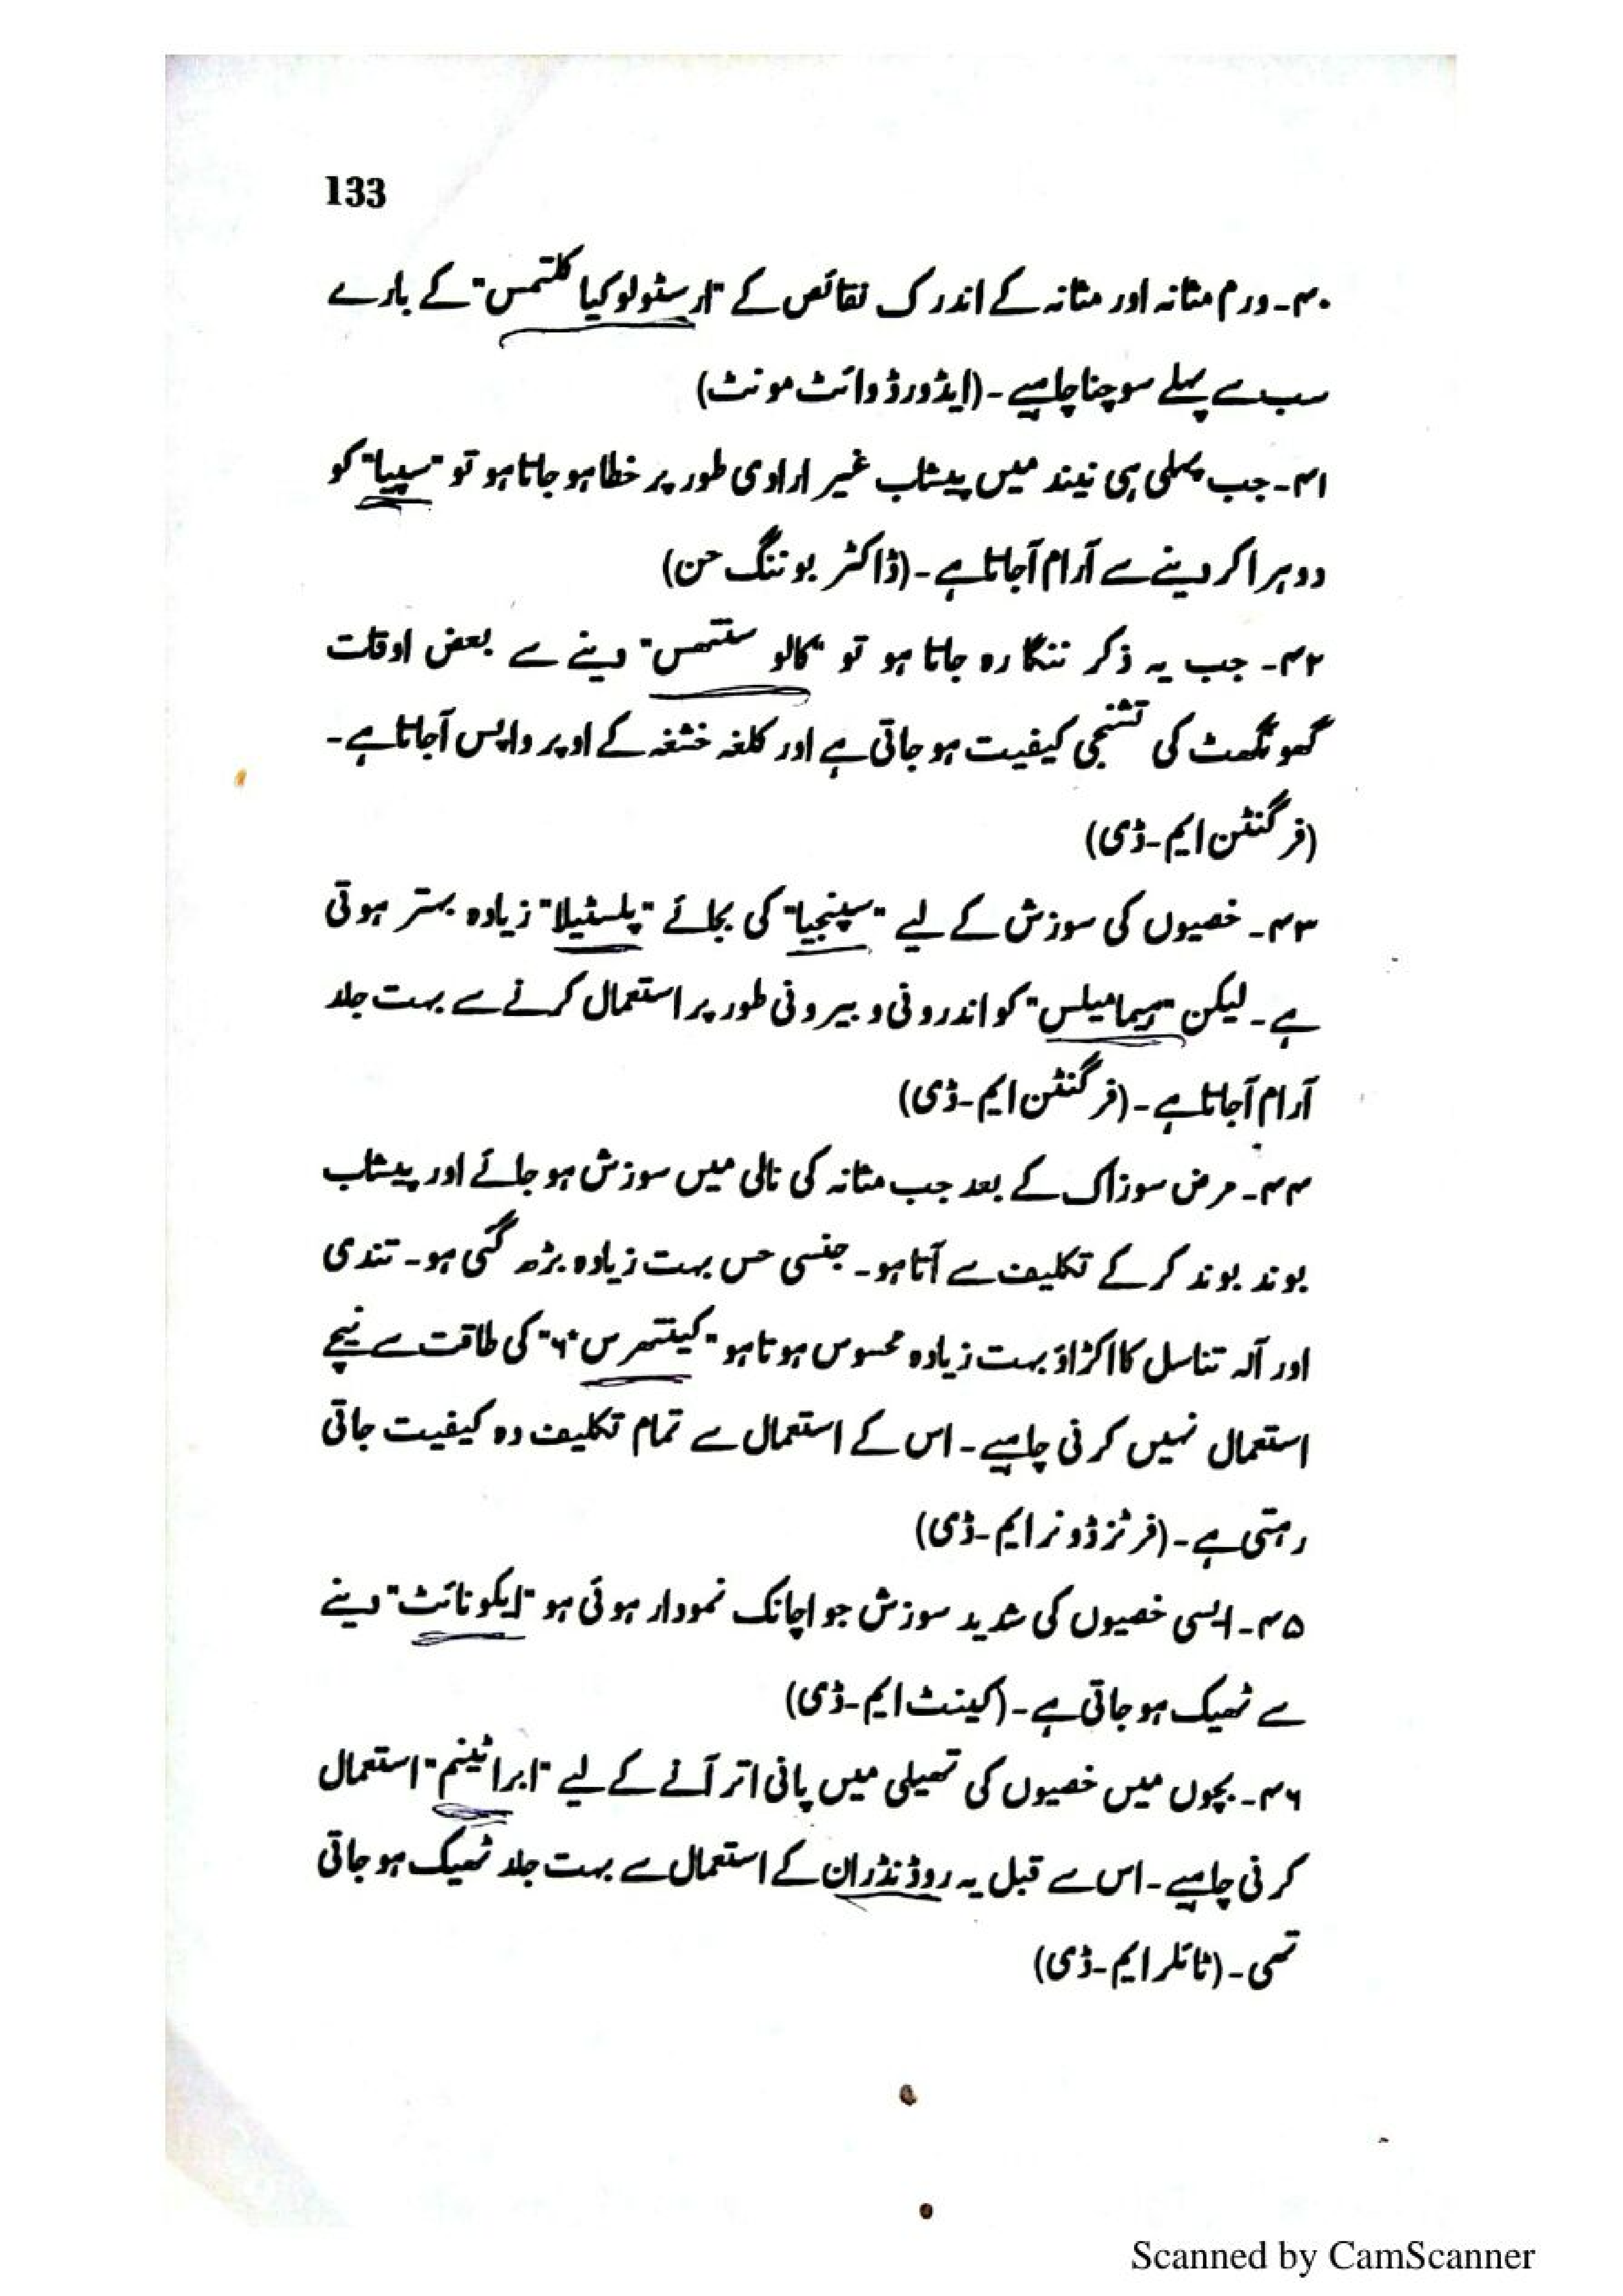 133
۴۰۔ ورم مثانہ اور مثانہ کے اندرک نقائص کے "ارسٹولوکیا کلتمس" کے بارے
سب سے پہلے سوچنا چاہیے۔ (ایڈورڈ وائٹ مونٹ)
۴۱۔ جب پہلی ہی نیند میں پیشاب غیر ارادی طور پر خطا ہو جاتا ہو تو "سیپیا" کو
دوہرا کر دینے سے آرام آجاتا ہے۔ (ڈاکٹر بوننگ حن)
۴۲۔ جب یہ ذکر ننگا رہ جاتا ہو تو "کالو سنتھس" دینے سے بعض اوقات
گھونگھٹ کی تشنجی کیفیت ہو جاتی ہے اور کلغہ خشفہ کے اوپر واپس آجاتا ہے۔
(فرگنٹن ایم۔ڈی)
۴۳۔ خصیوں کی سوزش کے لیے "سپنجیا" کی بجائے "پلسٹیلا" زیادہ بہتر ہوتی
ہے۔ لیکن "ہیمامیلس" کو اندرونی و بیرونی طور پر استعمال کرنے سے بہت جلد
آرام آجاتا ہے۔ (فرگنٹن ایم۔ڈی)
۴۴۔ مرض سوزاک کے بعد جب مثانہ کی نالی میں سوزش ہو جائے اور پیشاب
بوند بوند کر کے تکلیف سے آتا ہو۔ جنسی حس بہت زیادہ بڑھ گئی ہو۔ تندی
اور آلہ تناسل کا اکڑاؤ بہت زیادہ محسوس ہوتا ہو "کینتھرس ۶" کی طاقت سے نیچے
استعمال نہیں کرنی چاہیے۔ اس کے استعمال سے تمام تکلیف دہ کیفیت جاتی
رہتی ہے۔ (فرٹز ڈونر ایم۔ڈی)
۴۵۔ ایسی خصیوں کی شدید سوزش جو اچانک نمودار ہوئی ہو "ایکونائٹ" دینے
سے ٹھیک ہو جاتی ہے۔ (کینٹ ایم۔ڈی)
۴۶۔ بچوں میں خصیوں کی تھیلی میں پانی اتر آنے کے لیے "ابراٹینم" استعمال
کرنی چاہیے۔ اس سے قبل یہ روڈنڈران کے استعمال سے بہت جلد ٹھیک ہو جاتی
تھی۔ (ٹائلر ایم۔ڈی)
Scanned by CamScanner